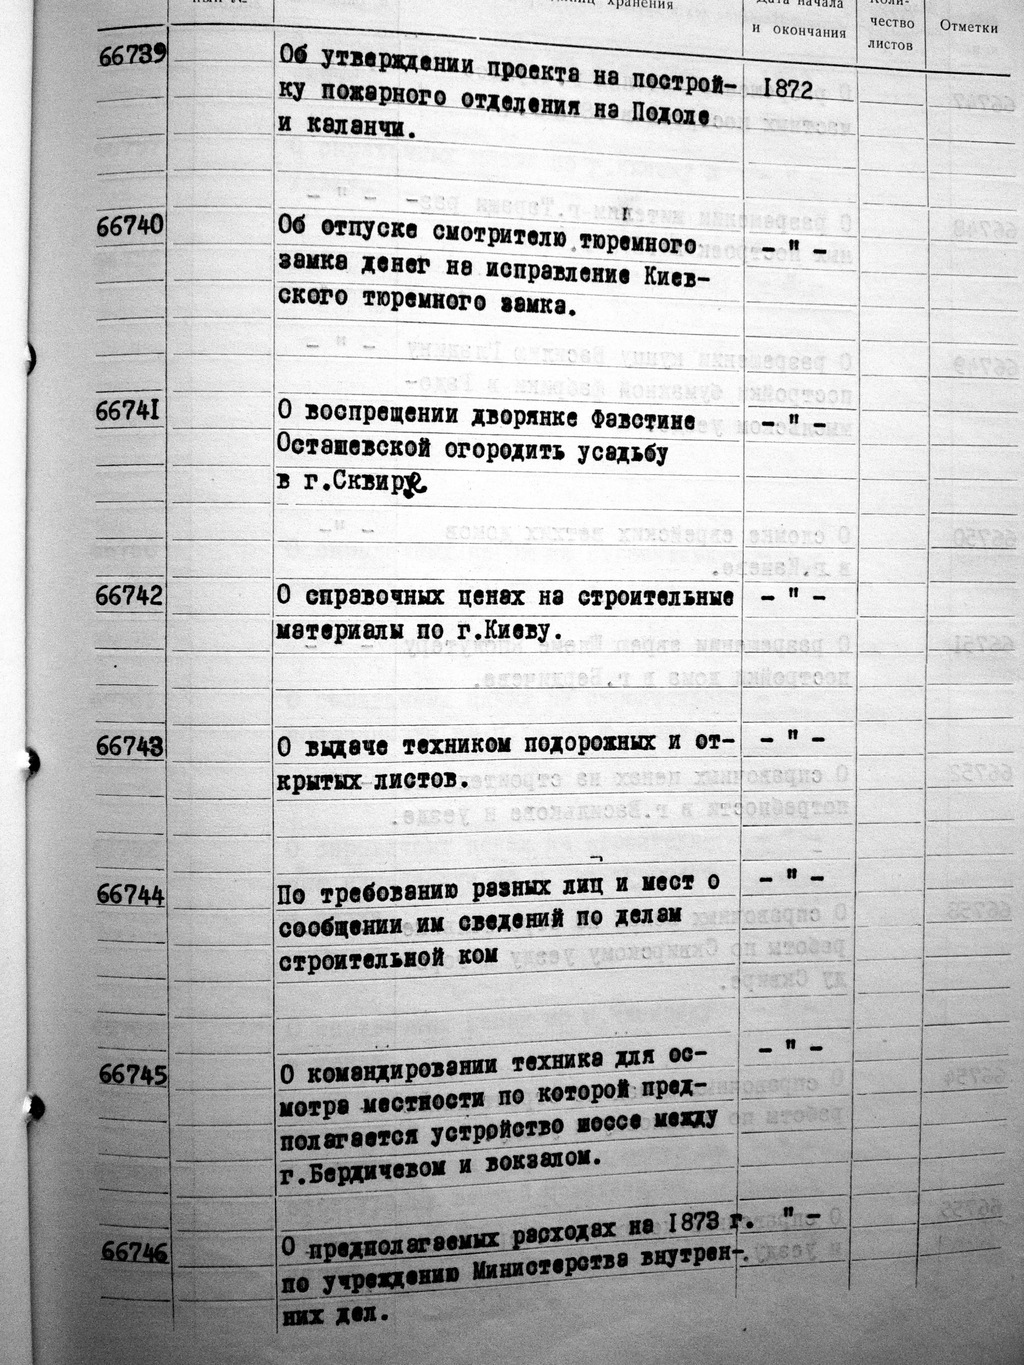 хранения
Дата начала
и окончания
Коли-
чество
листов
Отметки
66739 Об утверждении проекта на построй- 1872
ку пожарного отделения на Подоле
и каланчи.
66740 Об отпуске смотрителю тюремного - " -
замка денег на исправление Киев-
ского тюремного замка.
66741 О воспрещении дворянке Фавстине - " -
Осташевской огородить усадьбу
в г.Сквире
66742 О справочных ценах на строительные - " -
материалы по г.Киеву.
66743 О выдаче техником подорожных и от- - " -
крытых листов.
66744 По требованию разных лиц и мест о - " -
сообщении им сведений по делам
строительной ком
66745 О командировании техника для ос- - " -
мотра местности по которой пред-
полагается устройство шоссе между
г.Бердичевом и вокзалом.
66746 О предполагаемых расходах на 1873 г. " -
по учреждению Министерства внутрен-
них дел.